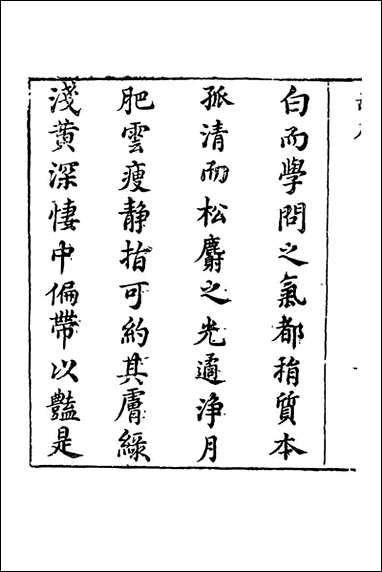 白而學問之氣都捐質本
孤清而松麝之光適淨月
肥雲瘦静指可約其膚綠
淺黄深悽中偏帶以豔是